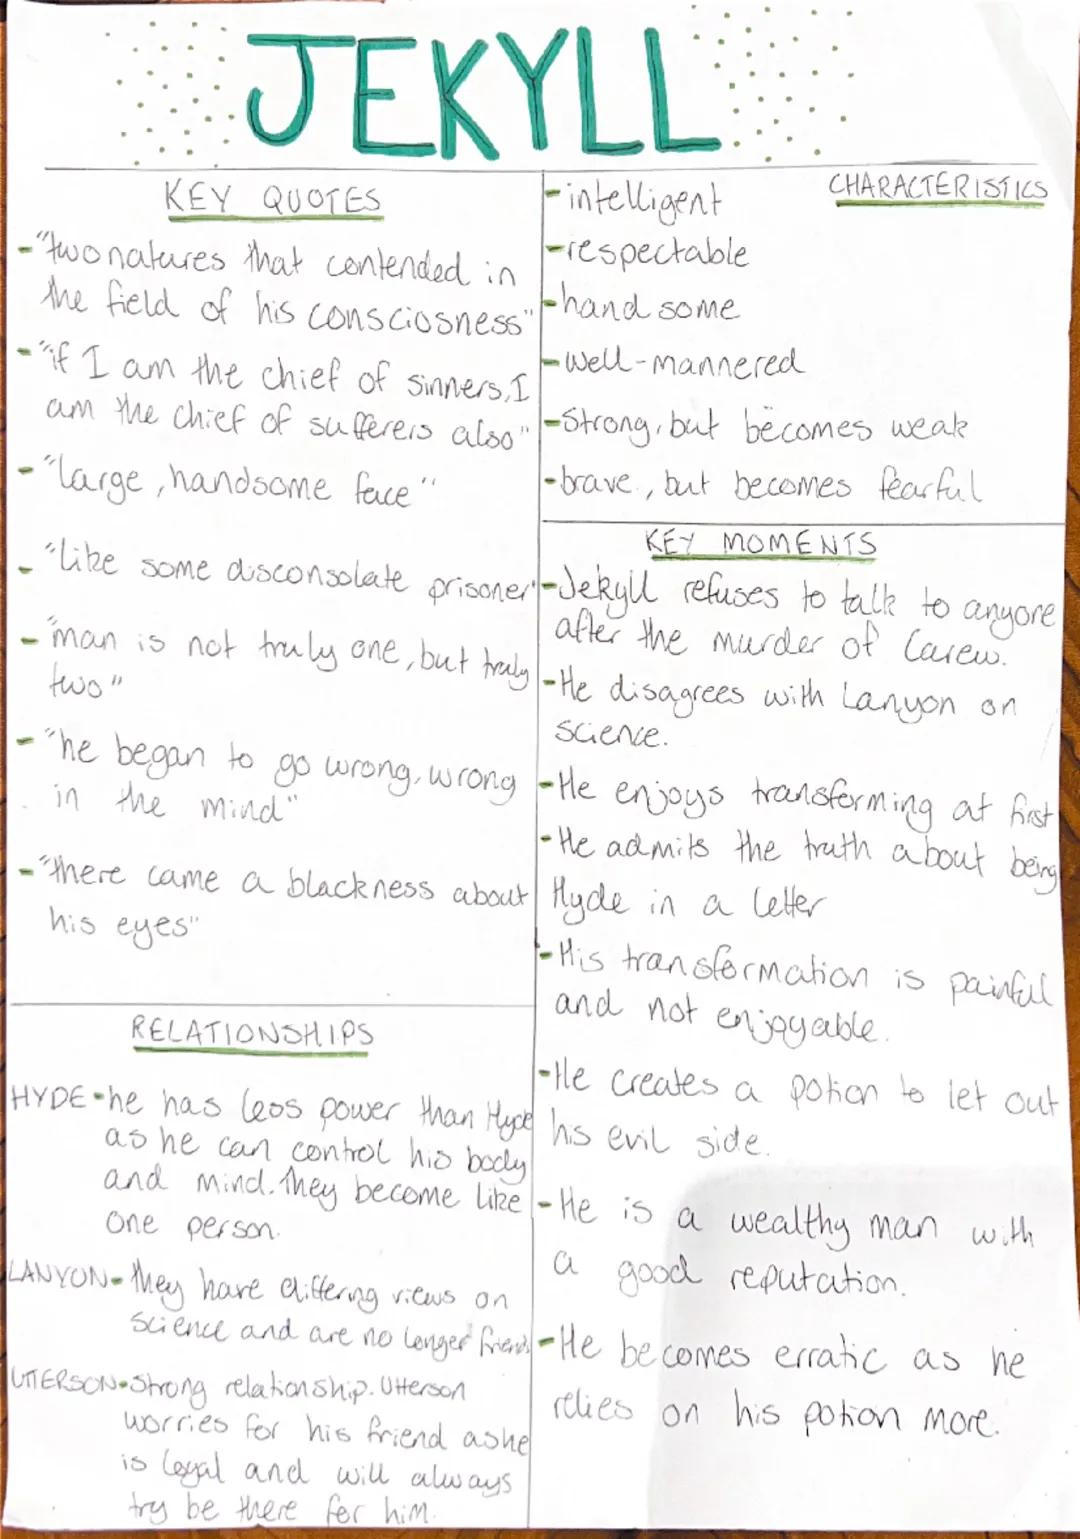 JEKYLL
KEY QUOTES
-"two natures that contended in
the field of his consciosness"
-"if I am the chief of sinners, I
am the chief of sufferers also"
-"large, handsome face"
-"like some disconsolate prisoner"
-"man is not truly one, but truly
two"
-"he began to go wrong, wrong
in the mind"
-"there came a blackness about
his eyes"
RELATIONSHIPS
HYDE-he has less power than Hyde
as he can control his body
and mind. They become like
one person.
LANYON-they have differing views on
science and are no longer friends
UTTERSON-Strong relationship. Utterson
worries for his friend as he
is loyal and will always
try be there for him.
CHARACTERISTICS
-intelligent
-respectable
-handsome
-well-mannered
-Strong, but becomes weak
-brave, but becomes fearful
KEY MOMENTS
-Jekyll refuses to talk to anyone
after the murder of Carew.
-He disagrees with Lanyon on
science.
-He enjoys transforming at first
-He admits the truth about being
Hyde in a letter
-His transformation is painful
and not enjoyable.
-He creates a potion to let out
his evil side.
-He is a wealthy man with
a good reputation.
-He becomes erratic as he
relies on his potion more.